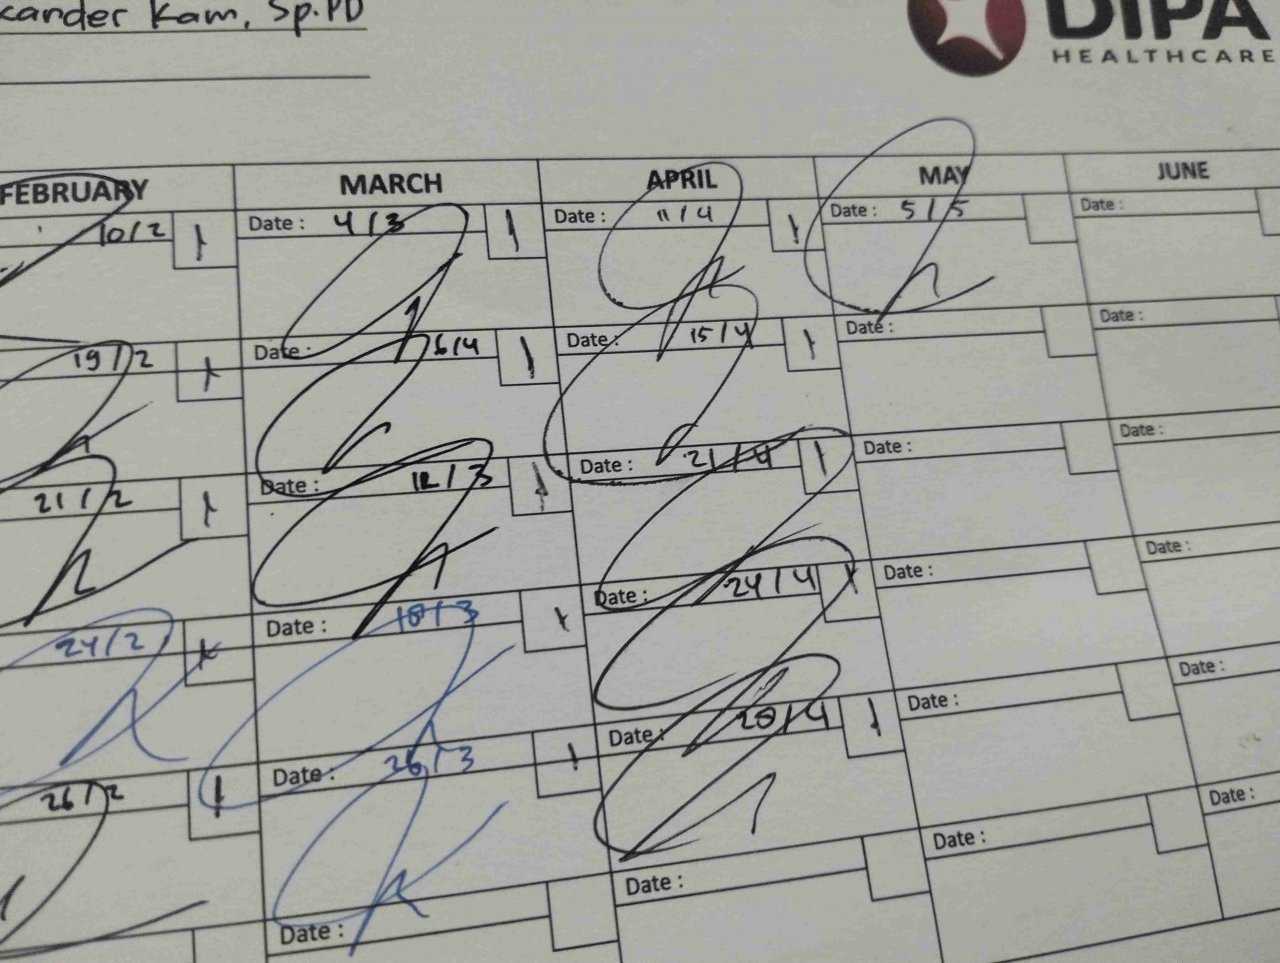 kander Kam, Sp.PD
DIPA
HEALTHCARE
FEBRUARY MARCH APRIL MAY JUNE
10/2 1 Date : 4/3 1 Date : 11/4 1 Date : 5/5 Date :
19/2 1 Date : 6/4 1 Date : 15/4 1 Date : Date :
21/2 1 Date : 12/3 1 Date : 21/4 1 Date : Date :
24/2 1 Date : 18/3 1 Date : 24/4 1 Date : Date :
26/2 1 Date : 26/3 1 Date : 28/4 1 Date : Date :
Date : Date : Date : Date :